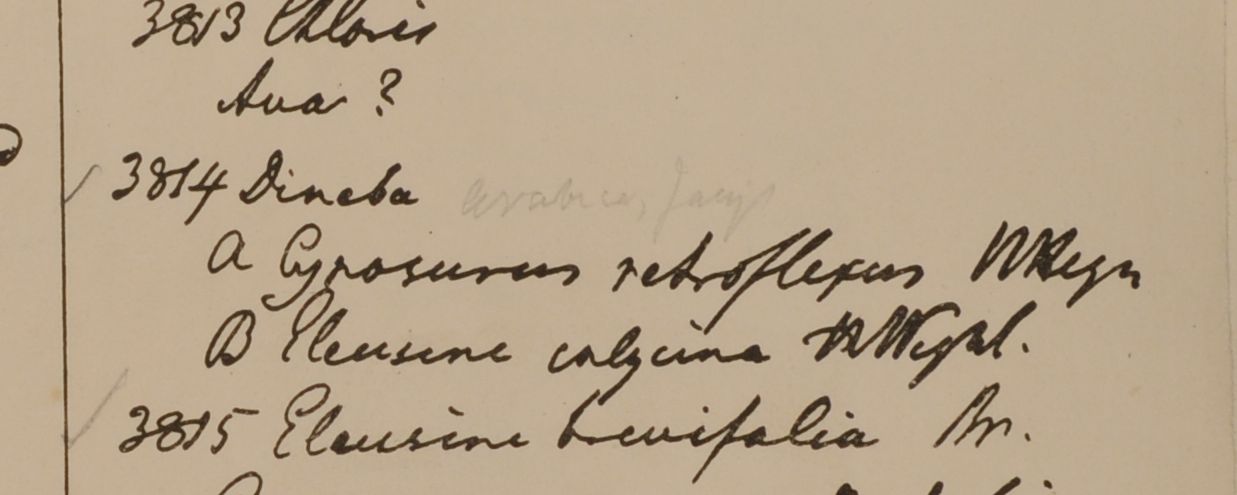 3813 Chloris
Ava ?
3814 Dineba arabica, Jacq
A Cynosurus retroflexus
B Eleusine calycina Wight.
3815 Eleusine brevifolia Br.